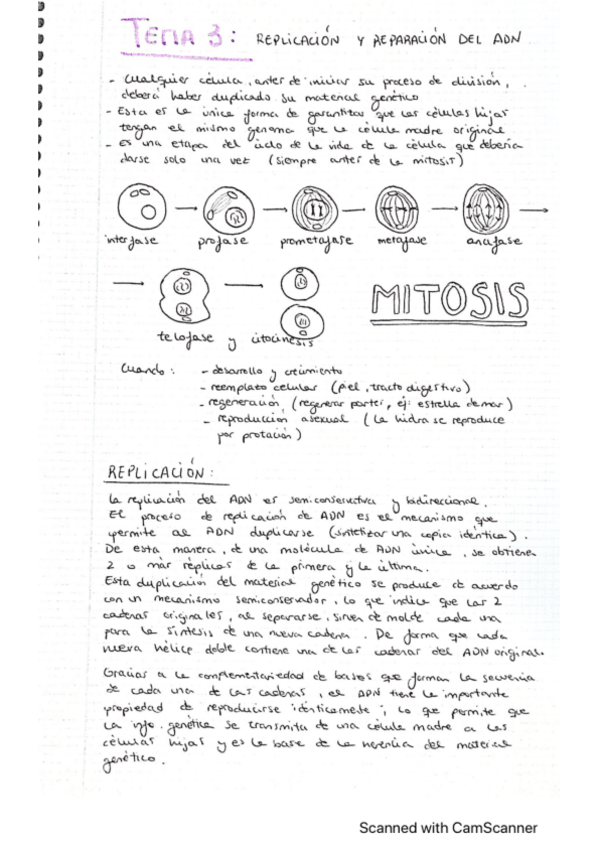 TEMA 3: REPLICACIÓN Y REPARACIÓN DEL ADN
- Cualquier célula, antes de iniciar su proceso de división,
deberá haber duplicado su material genético
- Esta es la única forma de garantizar que las células hijas
tengan el mismo genoma que la célula madre original
- Es una etapa del ciclo de la vida de la célula que debería
darse solo una vez (siempre antes de la mitosis)
interfase profase prometafase metafase anafase
telofase y citocinesis
MITOSIS
Cuando: - desarrollo y crecimiento
- reemplazo celular (piel, tracto digestivo)
- regeneración (regenerar partes, ej: estrella de mar)
- reproducción asexual (la hidra se reproduce
por protación)
REPLICACIÓN:
La replicación del ADN es semiconservativa y bidireccional.
El proceso de replicación de ADN es el mecanismo que
permite al ADN duplicarse (sintetizar una copia idéntica).
De esta manera, de una molécula de ADN única, se obtienen
2 o más réplicas de la primera y la última.
Esta duplicación del material genético se produce de acuerdo
con un mecanismo semiconservador, lo que indica que las 2
cadenas originales, al separarse, sirven de molde cada una
para la síntesis de una nueva cadena. De forma que cada
nueva hélice doble contiene una de las cadenas del ADN original.
Gracias a la complementariedad de bases que forman la secuencia
de cada una de las cadenas, el ADN tiene la importante
propiedad de reproducirse idénticamente, lo que permite que
la info. genética se transmita de una célula madre a las
células hijas y es la base de la herencia del material
genético.
Scanned with CamScanner